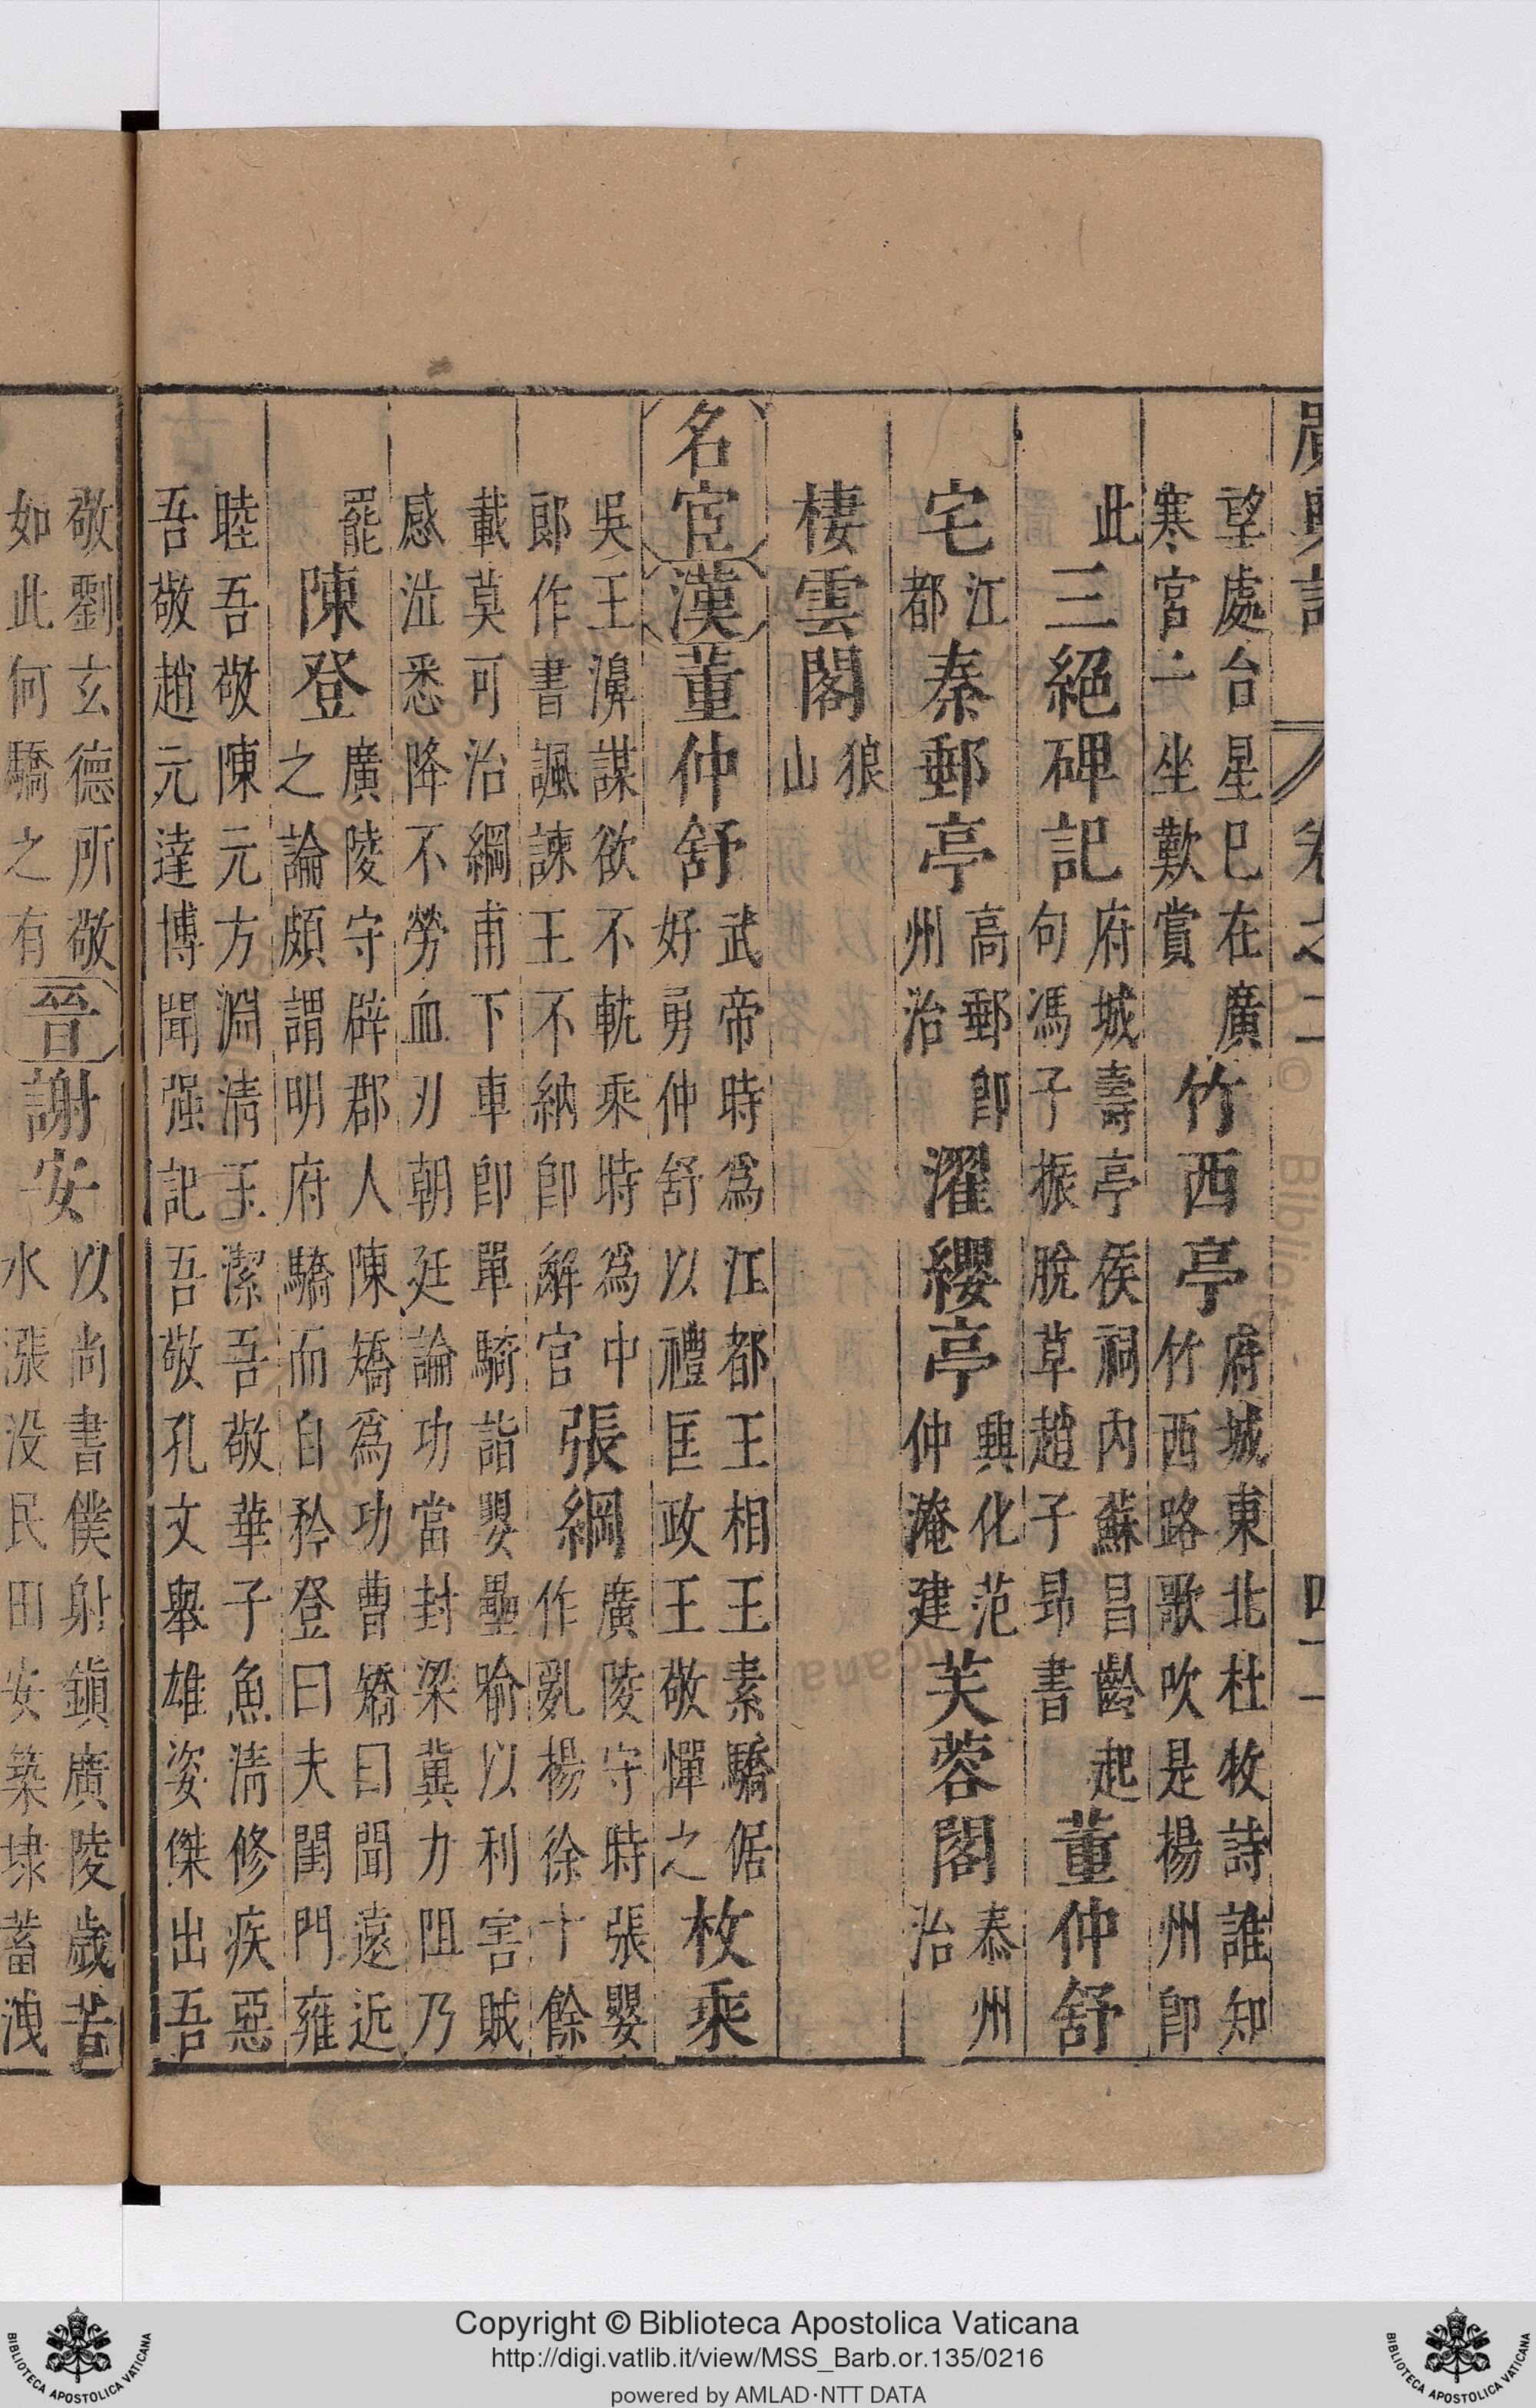 廣輿記 卷之二 四十一
望處台星巳在廣
寒宮二坐歎賞
竹西亭
府城東北杜牧詩誰知
竹西路歌吹是揚州卽
此
三絕碑記
府城壽亭侯祠內蘇昌齡起
句馮子振脫草趙子昂書
董仲舒
宅
江
都
秦郵亭
高郵卽
州治
濯纓亭
興化范
仲淹建
芙蓉閣
泰州
治
棲雲閣
狼
山
名宦
漢
董仲舒
武帝時爲江都王相王素驕倨
好勇仲舒以禮匡政王敬憚之
枚乘
吳王濞謀欲不軌乘時爲中
郎作書諷諫王不納卽解官
張綱
廣陵守時張嬰
作亂楊徐十餘
載莫可治綱甫下車卽單騎詣嬰壘喻以利害賊
感泣悉降不勞血刃朝廷論功當封梁冀力阻乃
罷
陳登
廣陵守辟郡人陳矯爲功曹矯曰聞遠近
之論頗謂明府驕而自矜登曰夫閨門雍
睦吾敬陳元方淵清玉潔吾敬華子魚清修疾惡
吾敬趙元達博聞强記吾敬孔文舉雄姿傑出吾
敬劉玄德所敬
如此何驕之有
晉
謝安
以尚書僕射鎭廣陵歲苦
水漲没民田安築埭蓄洩
Copyright © Biblioteca Apostolica Vaticana
http://digi.vatlib.it/view/MSS_Barb.or.135/0216
powered by AMLAD·NTT DATA
BIBLIOTECA APOSTOLICA VATICANA
BIBLIOTECA APOSTOLICA VATICANA